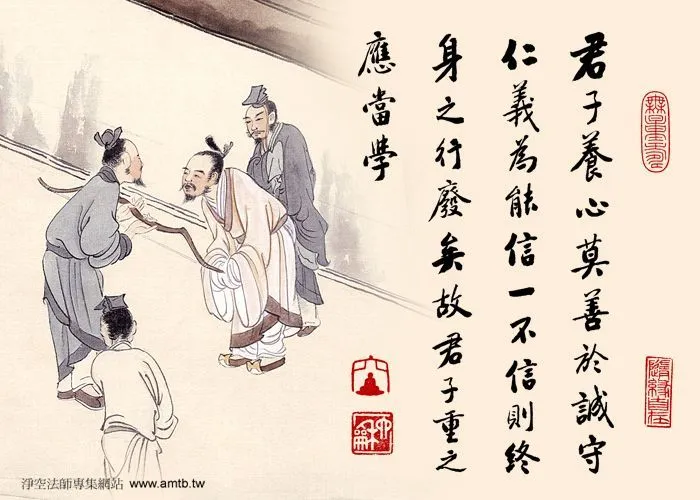 君子養心莫善於誠守
仁義為能信一不信則終
身之行廢矣故君子重之
應當學
淨空法師專集網站 www.amtb.tw